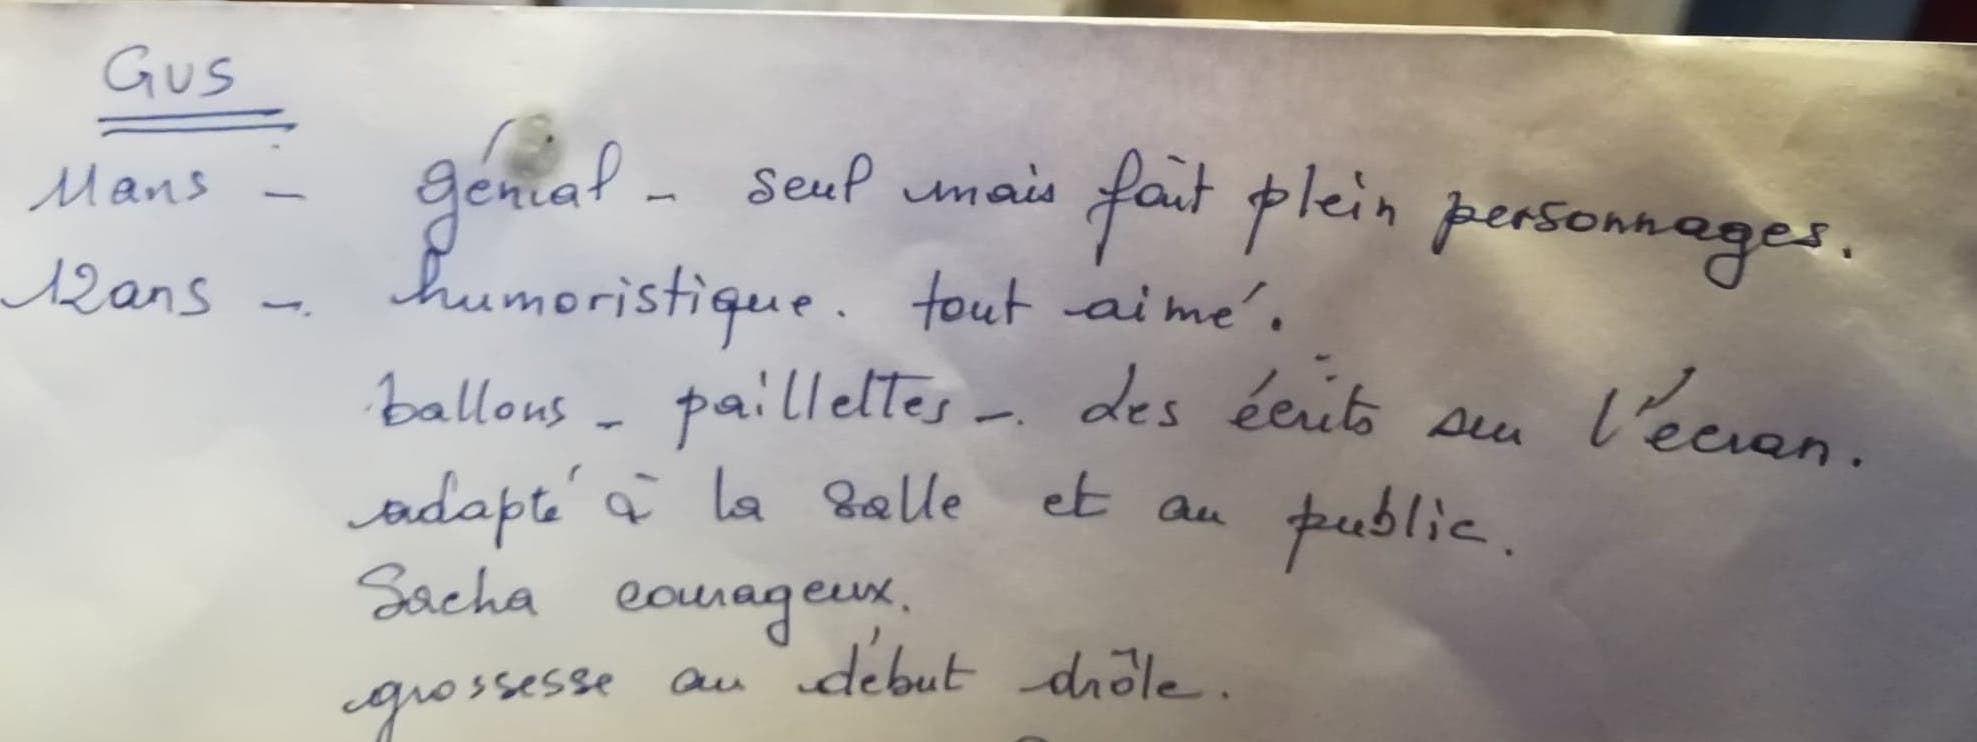 GUS
11ans - génial - seul mais fait plein personnages.
12ans -. humoristique. tout aimé.
ballons - paillettes -. des écrits sur l'écran.
adapté à la salle et au public.
Sacha courageux.
grossesse au début drôle.